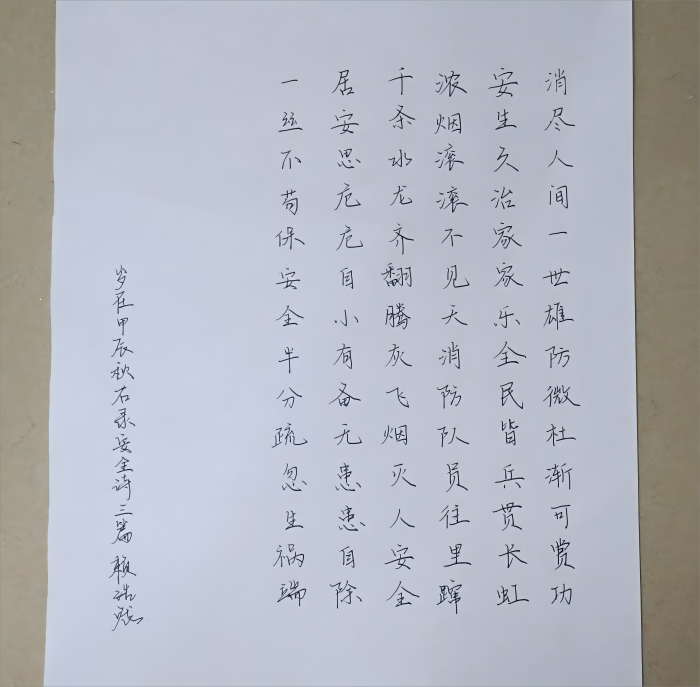 消尽人间一世雄防微杜渐可赏功
安生久治家家乐全民皆兵贯长虹
浓烟滚滚不见天消防队员往里蹿
千条水龙齐翻腾灰飞烟灭人安全
居安思危危自小有备无患患自除
一丝不苟保安全半分疏忽生祸端
岁在甲辰秋右录安全诗三篇赖浩